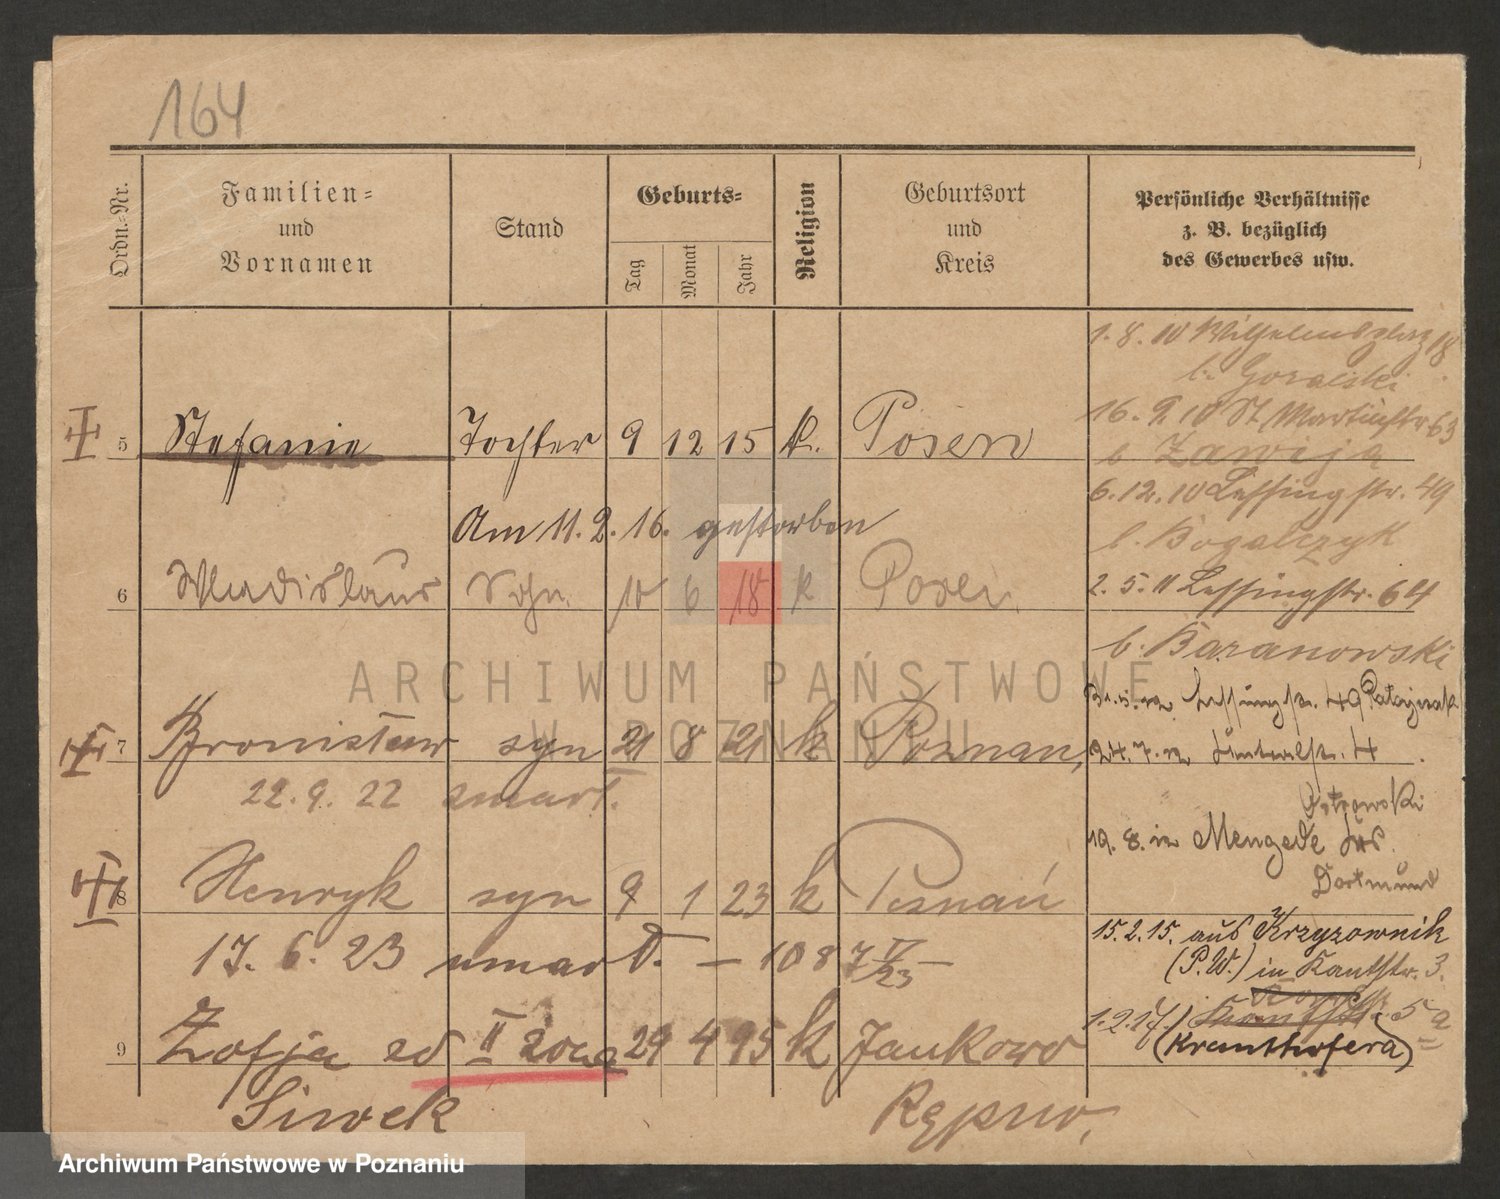 164
Ordn.-Nr.
Familien-
und
Vornamen
Stand
Geburts-
Tag
Monat
Jahr
Religion
Geburtsort
und
Kreis
Persönliche Verhältnisse
z. B. bezüglich
des Gewerbes usw.
5 Stefanie Tochter 9 12 15 k. Posen
Am 11. 2. 16. gestorben
6 Wladislaus Sohn 10 6 18 k Posen
7 Bronisław syn 21 8 21 k Poznań,
22. 9. 22 zmarł.
8 Henryk syn 9 1 23 k Poznań
17. 6. 23 umarł. — 1087
9 Zofja II żona 29 4 95 k Jankowo
Siwek
1. 8. 10 Wilhelmsplatz 18
b. Goralski
16. 9. 10 St Martinstr 63
b Zawija
6. 12. 10 Lessingstr. 49
b. Bogalczyk
2. 5. 11 Lessingstr. 64
b. Baranowski
Lessingstr. 49 Ratajczak
24. 7. 12 4
Ostrowski
19. 8. 12 Mengede
Dortmund
15. 2. 15. aus Krzyzownik
(P. W.) in Kantstr. 3.
1. 2. 17. 5 a
(Kramthofera)
ARCHIWUM PAŃSTWOWE
W POZNANIU
Archiwum Państwowe w Poznaniu